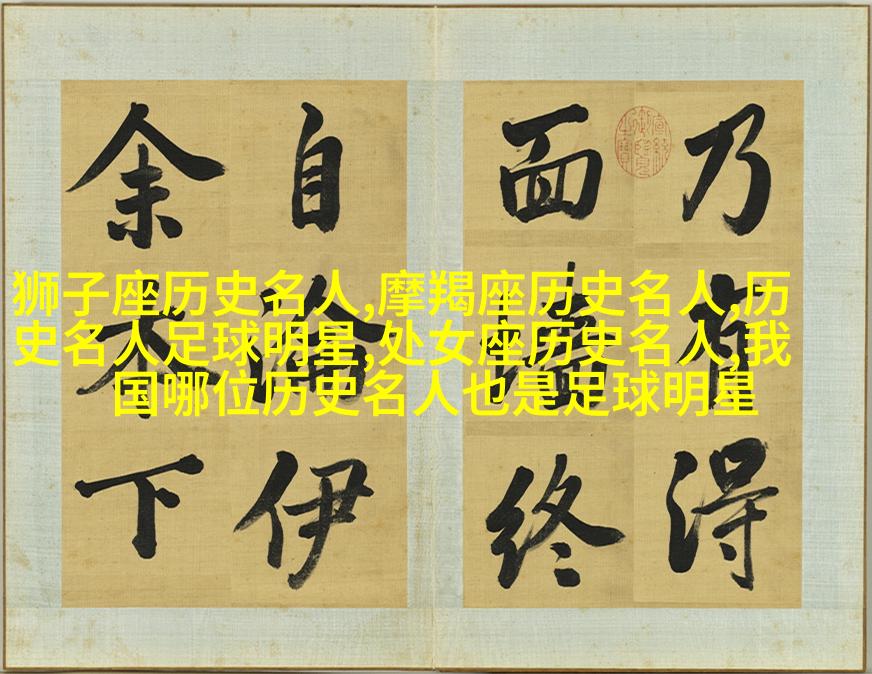 狮子座历史名人,摩羯座历史名人,历
史名人足球明星,处女座历史名人,我
国哪位历史名人也是足球明星
乃有得
面终
自伊
余下